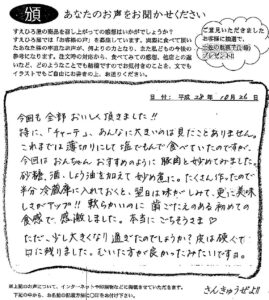 頒 あなたのお声をお聞かせください
すえひろ屋の商品を召し上がっての感想はいかがでしょうか?
すえひろ屋では「お客様の声」を募集しています。実際に食べて頂いた
あなた様の率直なお声が、何よりの力となり、また私どもの今後の
参考になります。注文時の対応から、食べてみての感想、他店との違
いなど、どのようなことでも結構ですのでお気付きのことを、文でも
イラストでもご自由にお書きの上、お送りください。
ご意見をいただきました
お客様に抽選で、
プレゼント!!
日付: 平成 28年 10月 26日
今回も全部おいしく頂きました!!
特に、「チャーテ」、あんなに大きいのは見たことありません。
これまでは薄切りにして塩でもんで食べていたのですが、
今回はおんちゃんおすすめのように豚肉と炒めてみました。
砂糖、酒、しょう油を加えて炒め煮に。たくさん作ったので
半分冷蔵庫に入れておくと、翌日は味がしみて、更に美味
しさがアップ!!軟らかいのに歯ごたえのある初めての
食感で、感激しました。本当にごちそうさま♡
ただ、少し大きくなり過ぎたのでしょうか?皮は硬くて
口に残りました。むいた方が良かったみたいですネ。
※上記のお声について、インターネットや印刷物などに掲載させていただきます。
下記の中から、お名前の記載方法に○をお付け下さい。
きんきゅうぜよ!!